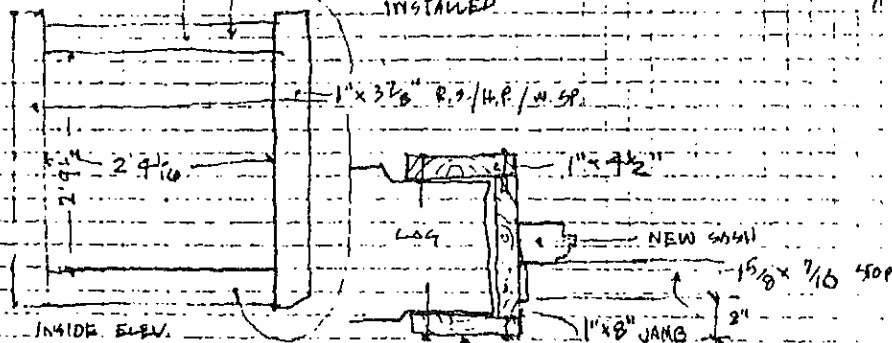 INSTALLED
1" x 3 7/8" R.S./H.P./W.SP.
2' 4 1/16
1" x 4 1/2"
LOG
NEW SASH
1 5/8 x 7/16 STOP
2"
1" x 8" JAMB
INSIDE ELEV.